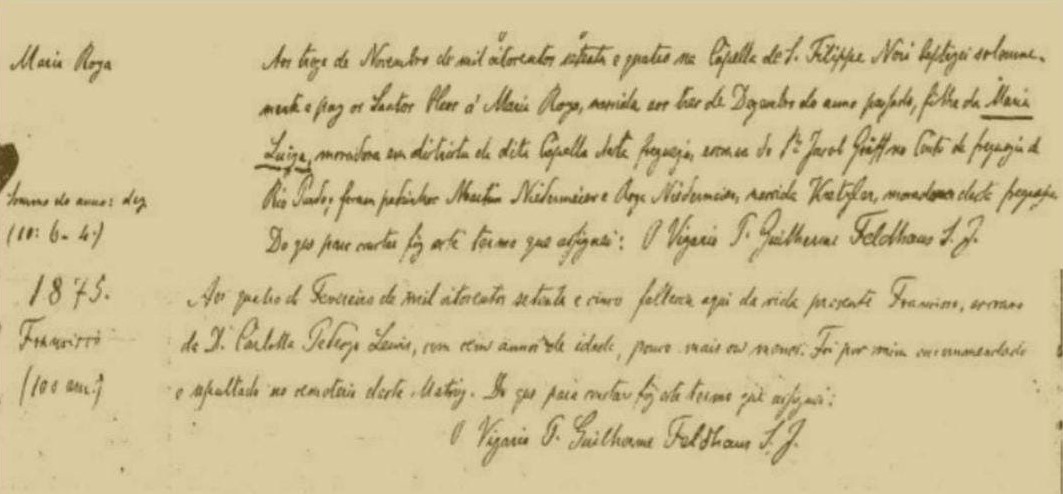 Maria Roza
Aos treze de Novembro de mil oitocentos setenta e quatro na Capella de S. Filippe Neri baptizei solemne-
mente e puz os Santos Oleos á Maria Roza, nascida aos tres de Dezembro do anno passado, filha da Maria
Luiza, moradora em districto da dita Capella desta freguezia, escrava do Sr. Jacob Gräff no Couto da freguezia de
Rio Pardo, foram padrinhos Martin Niedermeier e Roza Niedermeier, nascida, moradores desta freguezia.
Do que para constar fiz este termo que assignei: O Vigario P. Guilherme Feldhaus S. J.
Summa do anno: dez
(10: 6 - 4.)
1875.
Francisco
(100 ann.)
Aos quatro de Fevereiro de mil oitocentos setenta e cinco falleceu aqui da vida presente Francisco, escravo
da D. Carlotta Lewis, com cem annos de idade, pouco mais ou menos. Foi por mim encommendado
e sepultado no cemeterio desta Matriz. Do que para constar fiz este termo que assignei:
O Vigario P. Guilherme Feldhaus S. J.